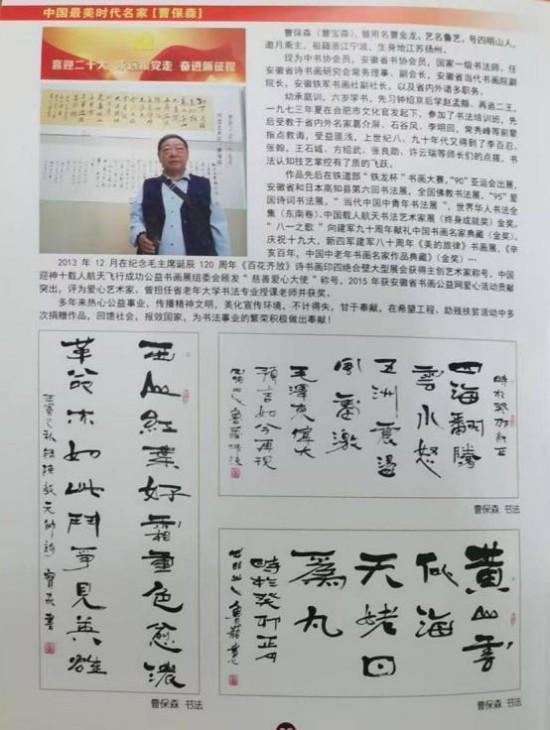 中国最美时代名家【曹保森】
喜迎二十大 永远跟党走 奋进新征程
曹保森（曹宝森），曾用名曹金龙，艺名鲁艺，号四明山人，
邀月斋主，祖籍浙江宁波，生身地江苏扬州。
现为中书协会员，安徽省书协会员，国家一级书法师，任
安徽省诗书画研究会常务理事、副会长，安徽省当代书画院副
院长，安徽铁军书画社副社长，以及省内外诸多职务。
幼承庭训，六岁学书，先习钟绍京后学赵孟頫，再追二王，
一九七三年夏在合肥市文化宫发起下，参加了书法培训班，先
后受教于省内外名家葛介屏、石谷风、李明回、常秀峰等前辈
指点教诲，受益匪浅，上世纪八、九十年代又得到了李百忍、
张翰、王石城、方绍武、张良勋、许云瑞等师长们的点拨，书
法认知技艺掌控有了质的飞跃。
作品先后在铁道部“铁龙杯”书画大赛，“90”亚运会出展，
安徽省和日本高知县第六回书法展，全国佛教书法展，“95”爱
国诗词书法展，“当代中国中青年书法展”，世界华人书法全
集（东南卷），中国载人航天书法艺术家展（终身成就奖）金奖，
“八一之歌”向建军九十周年献礼中国书画名家典藏（金奖），
庆祝十九大、新四军建军八十周年《美的旅律》书画展，《辛
亥百年，中国中老年书画名家作品典藏》（金奖）…
2013 年 12 月在纪念毛主席诞辰 120 周年《百花齐放》诗书画印四绝合壁大型展会获得主创艺术家称号，中国
迎神十载人航天飞行成功公益书画展组委会颁发“慈善爱心大使”称号，2015 年获安徽省书画公益网爱心活动贡献
突出，评为爱心艺术家，曾担任省老年大学书法专业授课老师并获奖。
多年来热心公益事业，传播精神文明，美化宣传环境，不计得失，甘于奉献，在希望工程，助残扶贫活动中多
次捐赠作品，回馈社会，报效国家，为书法事业的繁荣积极做出奉献！
西山红叶好霜重色愈浓
革命亦如此斗争见英雄
曹保森 书法
四海翻腾
云水怒
五洲震荡
风雷激
毛泽东伟大
预言如今再现
曹保森 书法
黄山云
似海
天姥日
为丸
时於癸卯正月
曹保森 书法